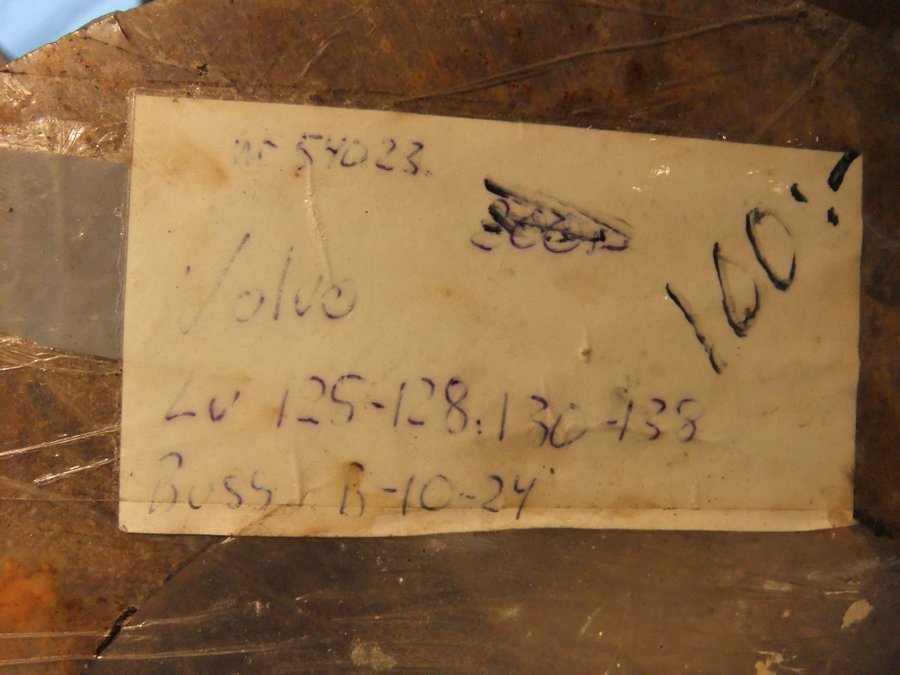 nr 54023.
100:-
Volvo
Lv 125-128.130-138
Buss B-10-24